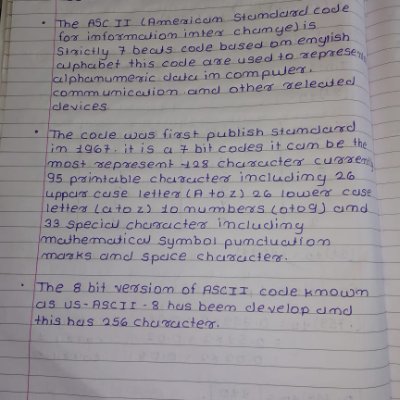 • The ASC II (American Standard code
for information inter change) is
Strictly 7 beats code based on english
alphabet this code are used to represent
alphanumeric data in compuler,
communication and other releated
devices
• The code was first publish standard
in 1967. it is a 7 bit codes it can be the
most represent 128 character curren
95 printable character including 26
uppar case letter (A to z) 26 lower case
letter (a to z) 10 numbers (0to9) and
33 special character including
mathematical symbol punctuation
marks and space character.
• The 8 bit version of ASCII code known
as US-ASCII-8 has been develop and
this has 256 character.